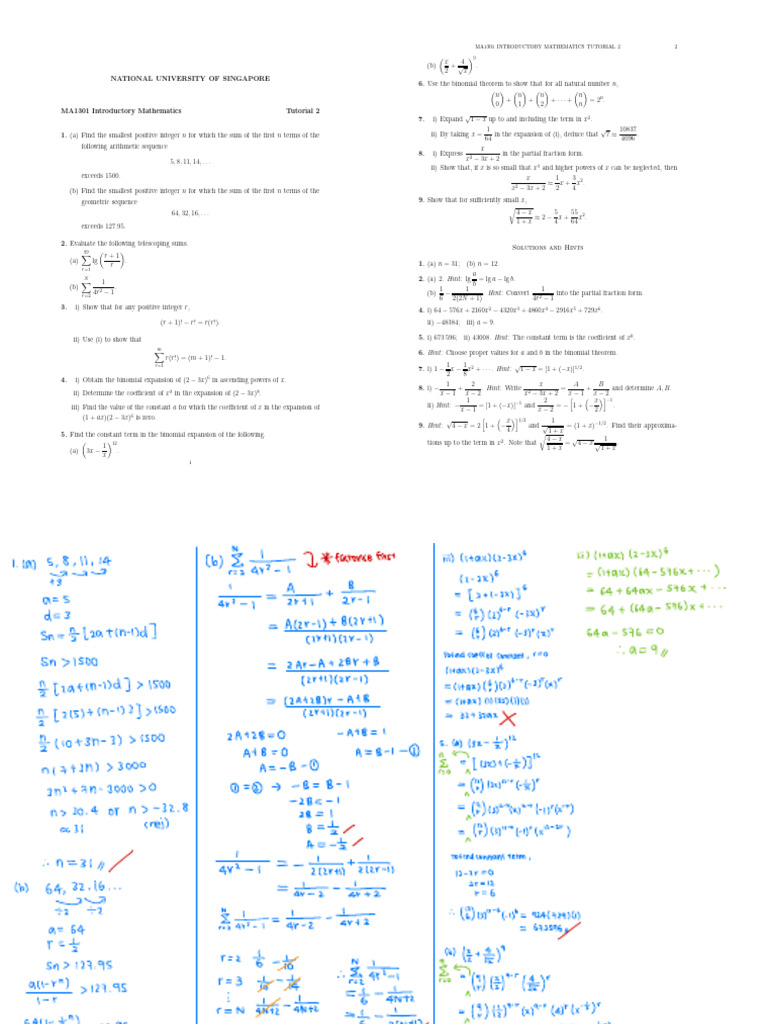 NATIONAL UNIVERSITY OF SINGAPORE
MA1301 Introductory Mathematics Tutorial 2
1. (a) Find the smallest positive integer n for which the sum of the first n terms of the
following arithmetic sequence
5, 8, 11, 14, . . .
exceeds 1500.
(b) Find the smallest positive integer n for which the sum of the first n terms of the
geometric sequence
64, 32, 16, . . .
exceeds 127.95.
2. Evaluate the following telescoping sums.
(a) ∑ lg((r+1)/r)
(b) ∑ 1/(4r²−1)
3. i) Show that for any positive integer r,
(r + 1)! − r! = r(r!).
ii) Use (i) to show that
∑ r(r!) = (m + 1)! − 1.
4. i) Obtain the binomial expansion of (2 − 3x)⁶ in ascending powers of x.
ii) Determine the coefficient of x³ in the expansion of (2 − 3x)⁸.
iii) Find the value of the constant a for which the coefficient of x in the expansion of
(1 + ax)(2 − 3x)⁶ is zero.
5. Find the constant term in the binomial expansion of the following.
(a) (3x − 1/x)¹².
1
MA1301 INTRODUCTORY MATHEMATICS TUTORIAL 2 2
(b) (x/2 + 4/√x)⁹.
6. Use the binomial theorem to show that for all natural number n,
(n 0) + (n 1) + (n 2) + · · · + (n n) = 2ⁿ.
7. i) Expand √(1 − x) up to and including the term in x².
ii) By taking x = 1/64 in the expansion of (i), deduce that √7 ≈ 10837/4096.
8. i) Express x/(x² − 3x + 2) in the partial fraction form.
ii) Show that, if x is so small that x³ and higher powers of x can be neglected, then
x/(x² − 3x + 2) ≈ 1/2 x + 3/4 x².
9. Show that for sufficiently small x,
√((4 − x)/(1 + x)) ≈ 2 − 5/4 x + 55/64 x².
Solutions and Hints
1. (a) n = 31; (b) n = 12.
2. (a) 2. Hint: lg a/b = lg a − lg b.
(b) 1/6 − 1/(2(2N + 1)). Hint: Convert 1/(4r² − 1) into the partial fraction form.
4. i) 64 − 576x + 2160x² − 4320x³ + 4860x⁴ − 2916x⁵ + 729x⁶.
ii) −48384; iii) a = 9.
5. i) 673596; ii) 43008. Hint: The constant term is the coefficient of x⁰.
6. Hint: Choose proper values for a and b in the binomial theorem.
7. i) 1 − 1/2 x − 1/8 x² + · · · . Hint: √(1 − x) = [1 + (−x)]^(1/2).
8. i) −1/(x − 1) + 2/(x − 2). Hint: Write x/(x² − 3x + 2) = A/(x − 1) + B/(x − 2) and determine A, B.
ii) Hint: −1/(x − 1) = [1 + (−x)]⁻¹ and 2/(x − 2) = −[1 + (−x/2)]⁻¹.
9. Hint: √(4 − x) = 2[1 + (−x/4)]^(1/2) and 1/√(1 + x) = (1 + x)^(−1/2). Find their approxima-
tions up to the term in x². Note that √((4 − x)/(1 + x)) = √(4 − x) 1/√(1 + x).
1. (a) 5, 8, 11, 14
+3
a = 5
d = 3
Sn = n/2 [2a + (n-1)d]
Sn > 1500
n/2 [2a + (n-1)d] > 1500
n/2 [2(5) + (n-1)3] > 1500
n/2 (10 + 3n - 3) > 1500
n(7 + 3n) > 3000
3n² + 7n - 3000 > 0
n > 30.4 or n > -32.8
≈ 31 (rej)
∴ n = 31 //
(b) 64, 32, 16...
÷2 ÷2
a = 64
r = 1/2
Sn > 127.95
a(1-rⁿ)/(1-r) > 127.95
> 127.95
(b) N ∑ r=2 1/(4r² - 1) * factorise first
1/(4r² - 1) = A/(2r+1) + B/(2r-1)
= (A(2r-1) + B(2r+1))/((2r+1)(2r-1))
= (2Ar - A + 2Br + B)/((2r+1)(2r-1))
= ((2A+2B)r - A + B)/((2r+1)(2r-1))
2A + 2B = 0 -A + B = 1
A + B = 0 A = B - 1 - ②
A = -B - ①
① = ② → -B = B - 1
-2B = -1
2B = 1
B = 1/2
A = -1/2
1/(4r² - 1) = -1/(2(2r+1)) + 1/(2(2r-1))
= 1/(4r-2) - 1/(4r+2)
N ∑ r=2 1/(4r² - 1) = 1/(4r-2) - 1/(4r+2)
r = 2 1/6 - 1/10
r = 3 1/10 - 1/14
⋮
r = N 1/(4N-2) - 1/(4N+2)
∴ N ∑ r=2 1/(4r² - 1)
= 1/6 - 1/(4N+2)
= 1/6 -
iii) (1+ax)(2-3x)⁶
(2-3x)⁶
= [2 + (-3x)]⁶
= (6 r) (2)^(6-r) (-3x)^r
= (6 r) (2)^(6-r) (-3)^r (x)^r
r = 0
(1+ax)(2-3x)⁶
= (1+ax) (6 r) (2)^(6-r) (-3)^r (x)^r
= (1+ax) (1)(32)(1)(1)
= 32 + 32ax
ii) (1+ax)(2-3x)⁶
= (1+ax)(64 - 576x + ⋯)
= 64 + 64ax - 576x + ⋯
= 64 + (64a - 576)x + ⋯
64a - 576 = 0
∴ a = 9 //
5. (a) (3x - 1/x)¹²
= [(3x) + (-1/x)]¹²
= (12 r) (3x)^(12-r) (-1/x)^r
= (12 r) (3)^(12-r) (x)^(12-r) (-1)^r (x^-r)
= (12 r) (3)^(12-r) (-1)^r (x^(12-2r))
To find constant term,
12 - 2r = 0
2r = 12
r = 6
∴ (12 6) (3)^(12-6) (-1)⁶ = 924 (729)(1)
= 673596 //
(b) (x/2 + 4/√x)⁹